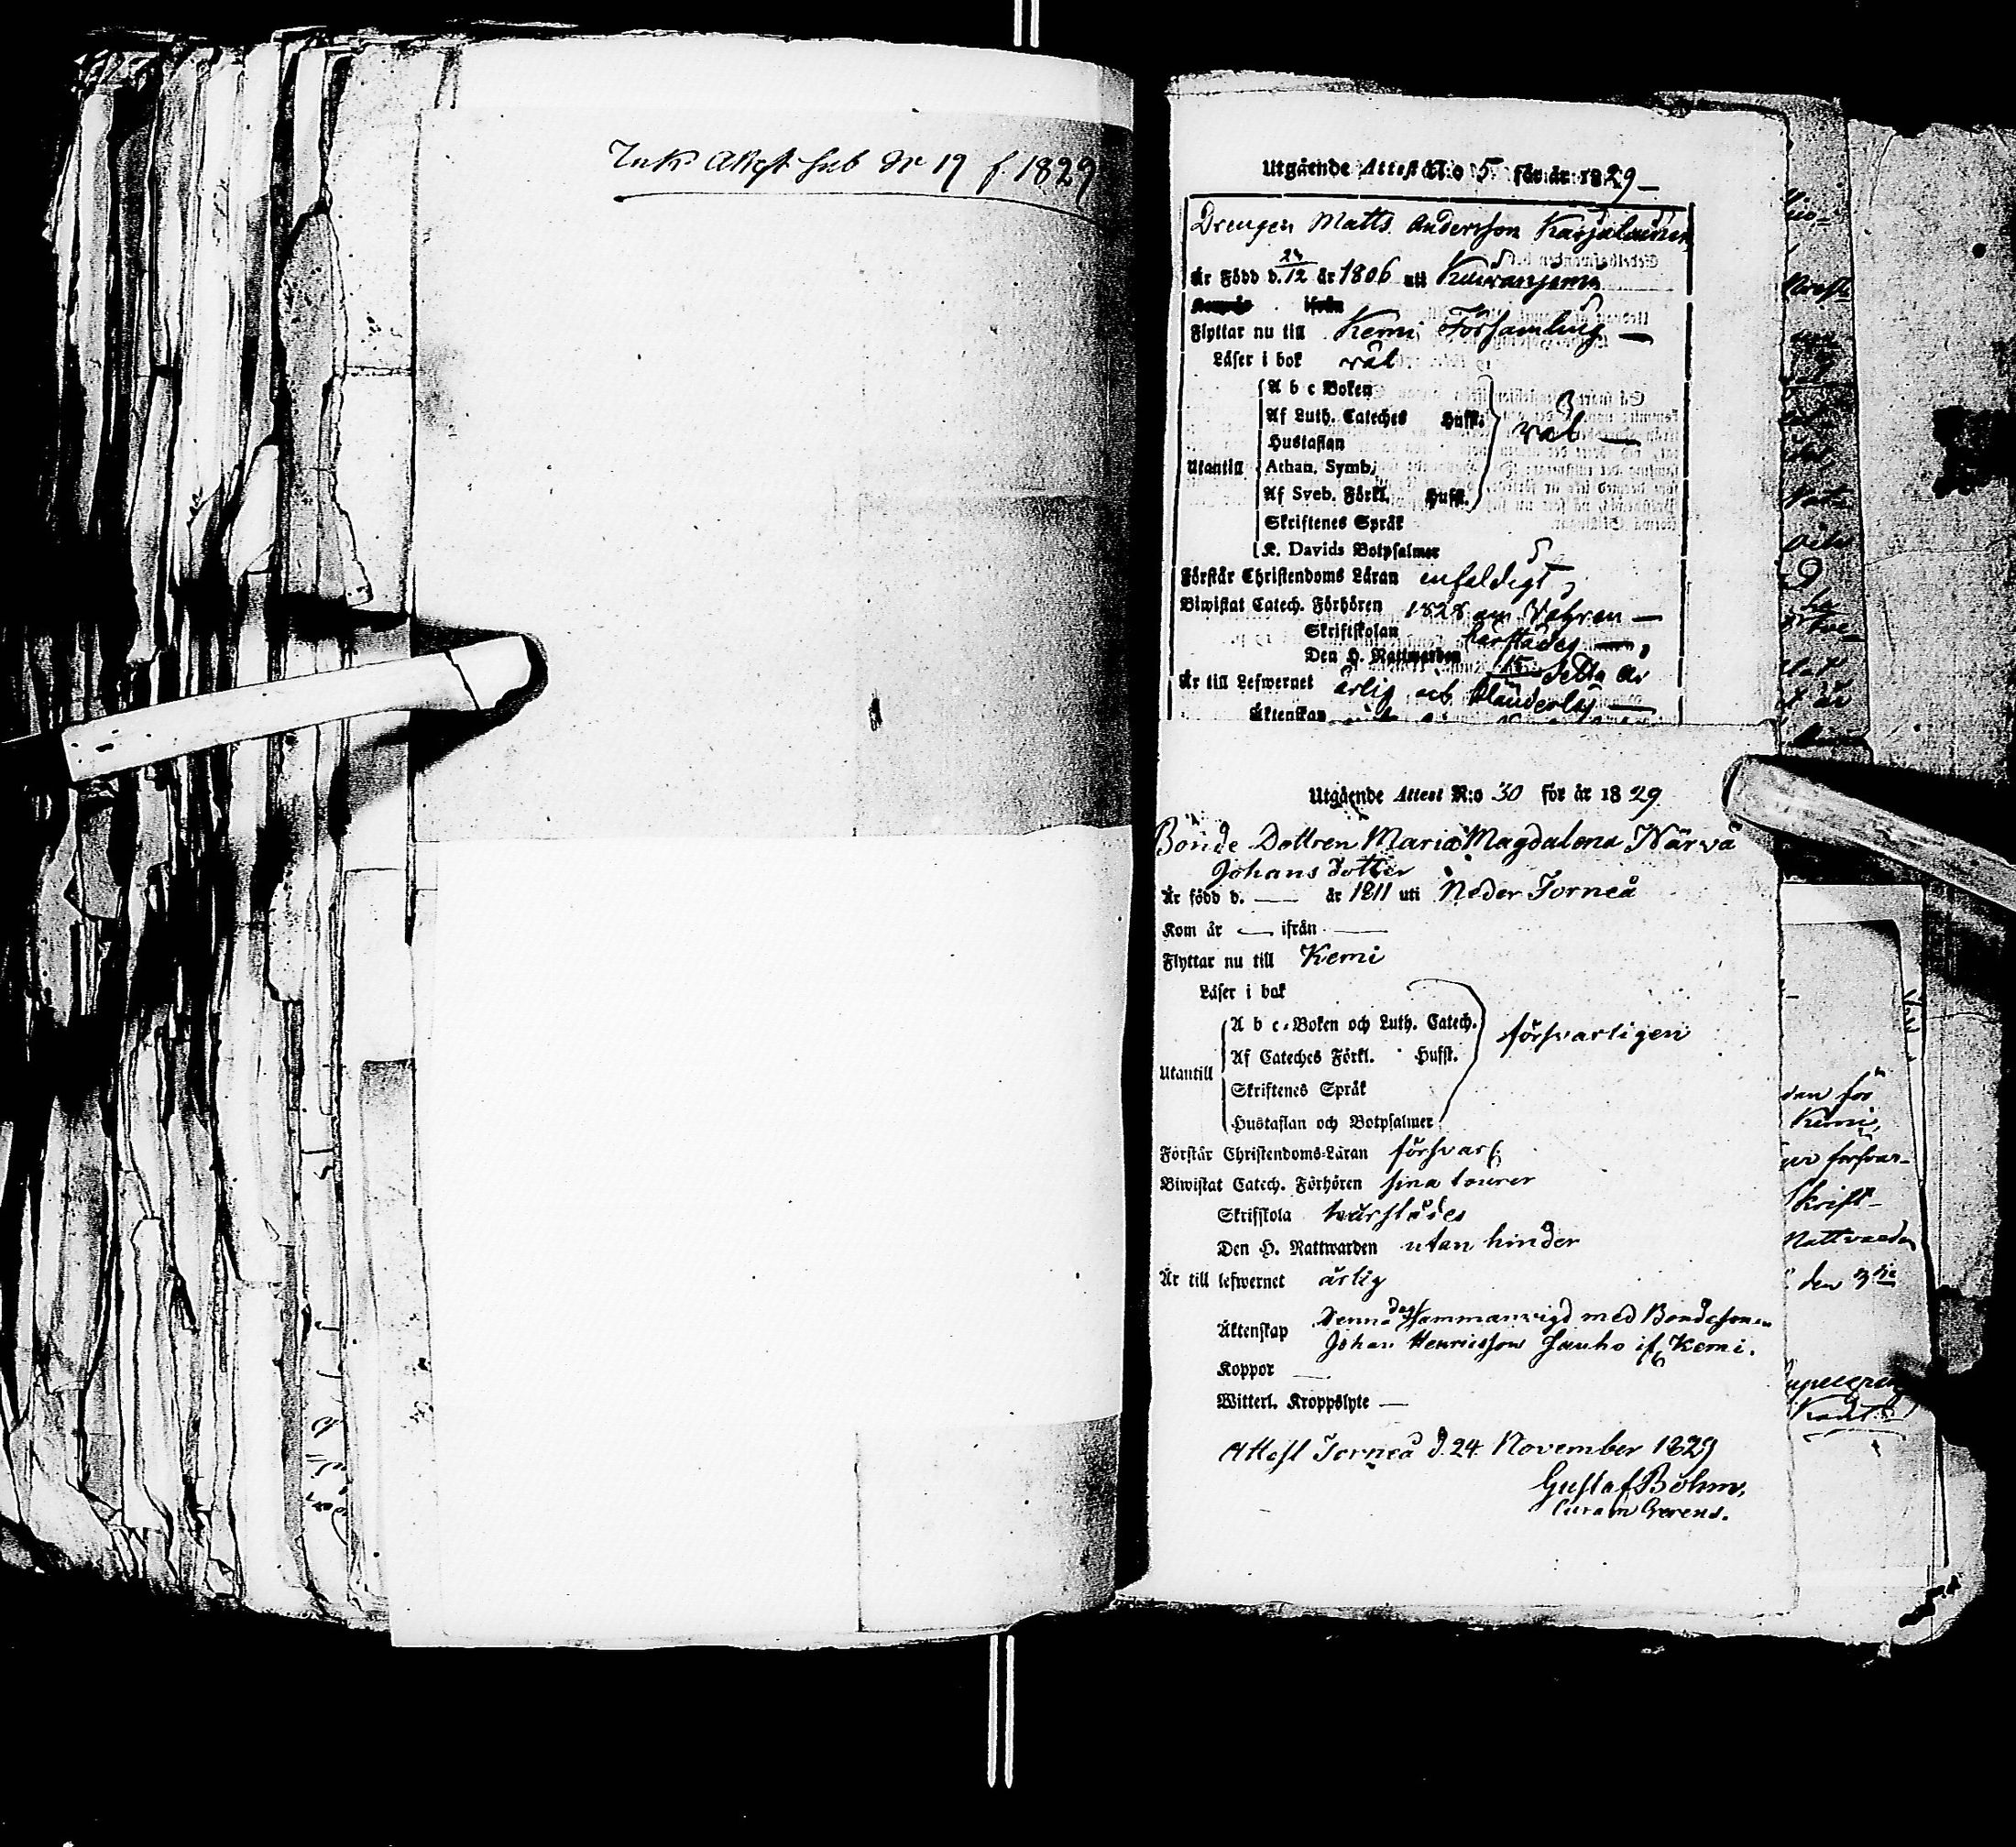 Ink. Attest sub Nr 17 f 1829
Utgående Attest N:o 5 för år 1829
Drengen Matts Andersson Karjalainen
Är Född d. 24/12 år 1806 uti
ifrån
Flyttar nu till Kemi Församling
Läser i bok väl
A b c Boken
Af Luth. Cateches Hufst. väl
Hustaflan
Utantill Athan. Symb.
Af Sveb. Förkl. Hufst.
Skriftenes Språk
K. Davids Botpsalmer
Förstår Christendoms Läran enfaldigt
Biwistat Catech. Förhören 1828 om Våhren
Skriftskolan härstädes
Den H. Nattwarden detta år
Är till Lefwernet ärlig och klanderlös
Äktenskap
Utgående Attest N:o 30 för år 1829
Bonde Dottren Maria Magdalena Närvä
Johans dotter
Är född d. — år 1811 uti Neder Torneå
Kom år — ifrån —
Flyttar nu till Kemi
Läser i bok
A b c-Boken och Luth. Catech. försvarligen
Af Cateches Förkl. Hufst.
Utantill
Skriftenes Språk
Hustaflan och Botpsalmer
Förstår Christendoms-Läran försvarl.
Biwistat Catech. Förhören sina tourer
Skrifskola härstädes
Den H. Nattwarden utan hinder
Är till lefwernet ärlig
Denna dag sammanvigd med Bondesonen
Äktenskap
Johan Henricsson Jauho if. Kemi.
Koppor —
Witterl. Kroppslyte —
Attest Torneå d. 24 November 1829
Gustaf Bohm,
Curam Gerens.
dan för
Kemi,
försvar-
Skrift-
Nattvarden
den